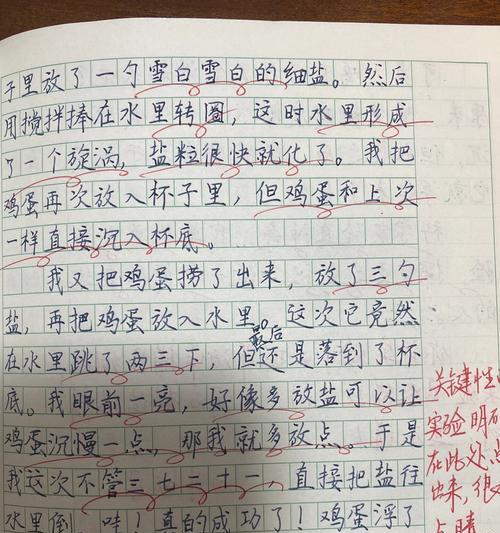 子里放了一勺雪白雪白的细盐。然后
用搅拌棒在水里转圈，这时水里形成
了一个旋涡，盐粒很快就化了。我把
鸡蛋再次放入杯子里，但鸡蛋和上次
一样直接沉入杯底。
我又把鸡蛋捞了出来，放了三勺
盐，再把鸡蛋放入水里。这次它竟然
最后
在水里跳了两三下，但还是落到了杯
底。我眼前一亮，好像多放盐可以让
鸡蛋沉慢一点，那我就多放点。于是
我这次不管三七二十一，直接把盐往
水里倒，哇！真的成功了！鸡蛋浮了
关键性
实验明
在此处点
出来，很
点睛